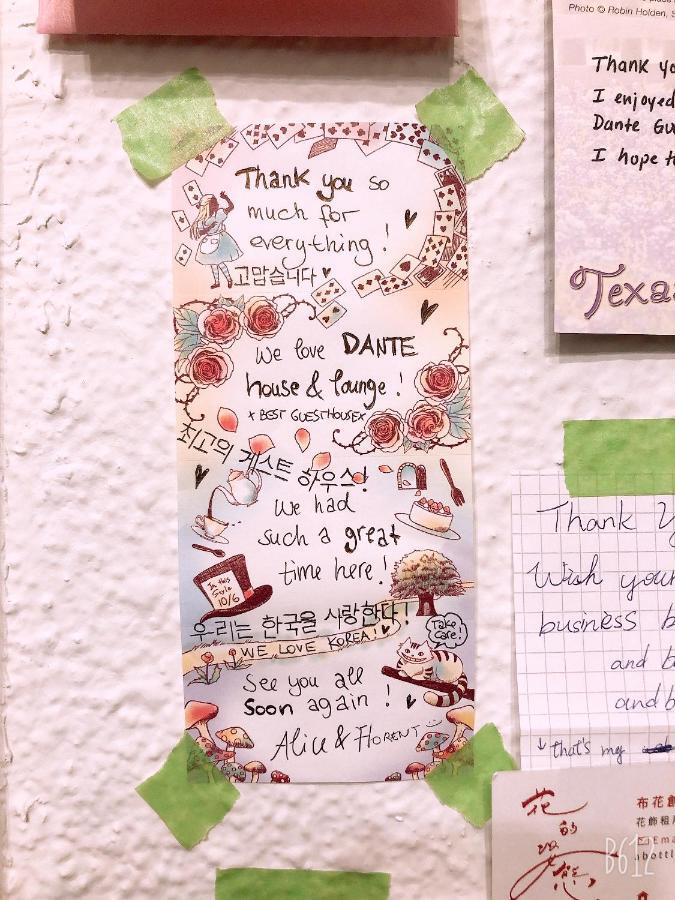 Thank you so
much for
everything!
고맙습니다
We love DANTE
house & lounge!
x BEST GUESTHOUSE x
최고의 게스트 하우스!
We had
such a great
time here!
In this
Style
10/6
우리는 한국을 사랑한다!
WE LOVE KOREA!
Take
care!
See you all
Soon again!
Alice & FLORENT
Photo © Robin Holden, S
Thank yo
I enjoyed
Dante Gu
I hope t
Texas
Thank Y
Wish your
business b
and b
and b
↓ that's my
花
的
布花創
花飾租
Ema
abottl
B612